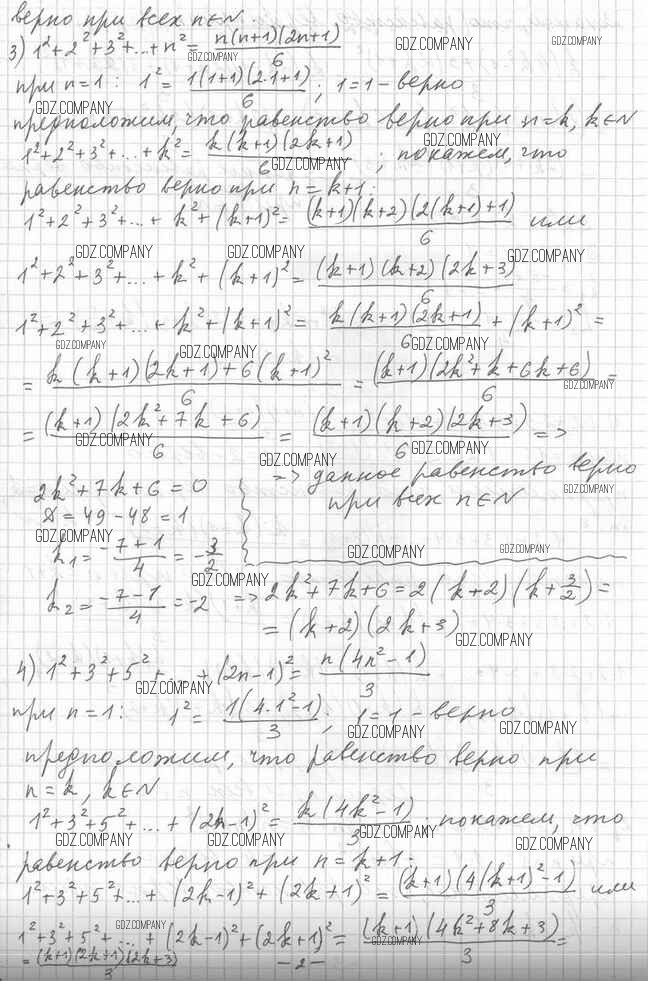 верно при всех n∈N
3) 1²+2²+3²+...+n² = n(n+1)(2n+1)/6
GDZ.COMPANY GDZ.COMPANY GDZ.COMPANY
при n=1: 1² = 1(1+1)(2·1+1)/6; 1=1 – верно
GDZ.COMPANY
предположим, что равенство верно при n=k, k∈N
GDZ.COMPANY
1²+2²+3²+...+k² = k(k+1)(2k+1)/6; покажем, что
GDZ.COMPANY
равенство верно при n=k+1:
1²+2²+3²+...+k²+(k+1)² = (k+1)(k+2)(2(k+1)+1)/6 или
GDZ.COMPANY GDZ.COMPANY GDZ.COMPANY
1²+2²+3²+...+k²+(k+1)² = (k+1)(k+2)(2k+3)/6
1²+2²+3²+...+k²+(k+1)² = k(k+1)(2k+1)/6 + (k+1)² =
GDZ.COMPANY GDZ.COMPANY GDZ.COMPANY
= k(k+1)(2k+1)+6(k+1)²/6 = (k+1)(2k²+k+6k+6)/6 =
GDZ.COMPANY
= (k+1)(2k²+7k+6)/6 = (k+1)(k+2)(2k+3)/6 =>
GDZ.COMPANY GDZ.COMPANY
GDZ.COMPANY
=> данное равенство верно
при всех n∈N
GDZ.COMPANY
2k²+7k+6=0
D=49-48=1
GDZ.COMPANY GDZ.COMPANY GDZ.COMPANY
k₁ = -7+1/4 = -3/2
GDZ.COMPANY
k₂ = -7-1/4 = -2 => 2k²+7k+6 = 2(k+2)(k+3/2) =
= (k+2)(2k+3)
GDZ.COMPANY
4) 1²+3²+5²+...+(2n-1)² = n(4n²-1)/3
GDZ.COMPANY
при n=1: 1² = 1(4·1²-1)/3; 1=1 – верно
GDZ.COMPANY GDZ.COMPANY
предположим, что равенство верно при
n=k, k∈N
1²+3²+5²+...+(2k-1)² = k(4k²-1)/3; покажем, что
GDZ.COMPANY GDZ.COMPANY GDZ.COMPANY GDZ.COMPANY
равенство верно при n=k+1:
1²+3²+5²+...+(2k-1)²+(2k+1)² = (k+1)(4(k+1)²-1)/3 или
GDZ.COMPANY
1²+3²+5²+...+(2k-1)²+(2k+1)² = (k+1)(4k²+8k+3)/3 =
GDZ.COMPANY
= (k+1)(2k+1)(2k+3)/3
-2-